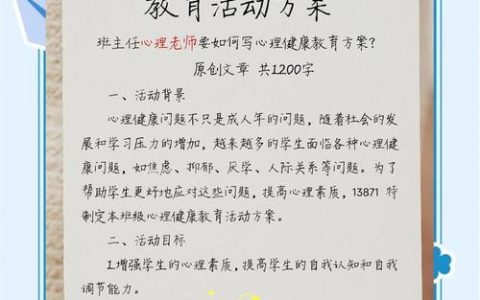 教育活动方案
班主任心理老师要如何写心理健康教育方案？
原创文章 共1200字
一、活动背景
心理健康问题不只是成人年的问题，随着社会的发
展和学习压力的增加，越来越多的学生面临各种心理健
康问题，如焦虑、抑郁、厌学、人际关系等问题。为了
帮助学生更好地应对这些问题，提高心理素质，13871 特
制定本班级心理健康教育活动方案。
二、活动目标
1.增强学生的心理素质，提高学生的自我认知和自我
调节能力。